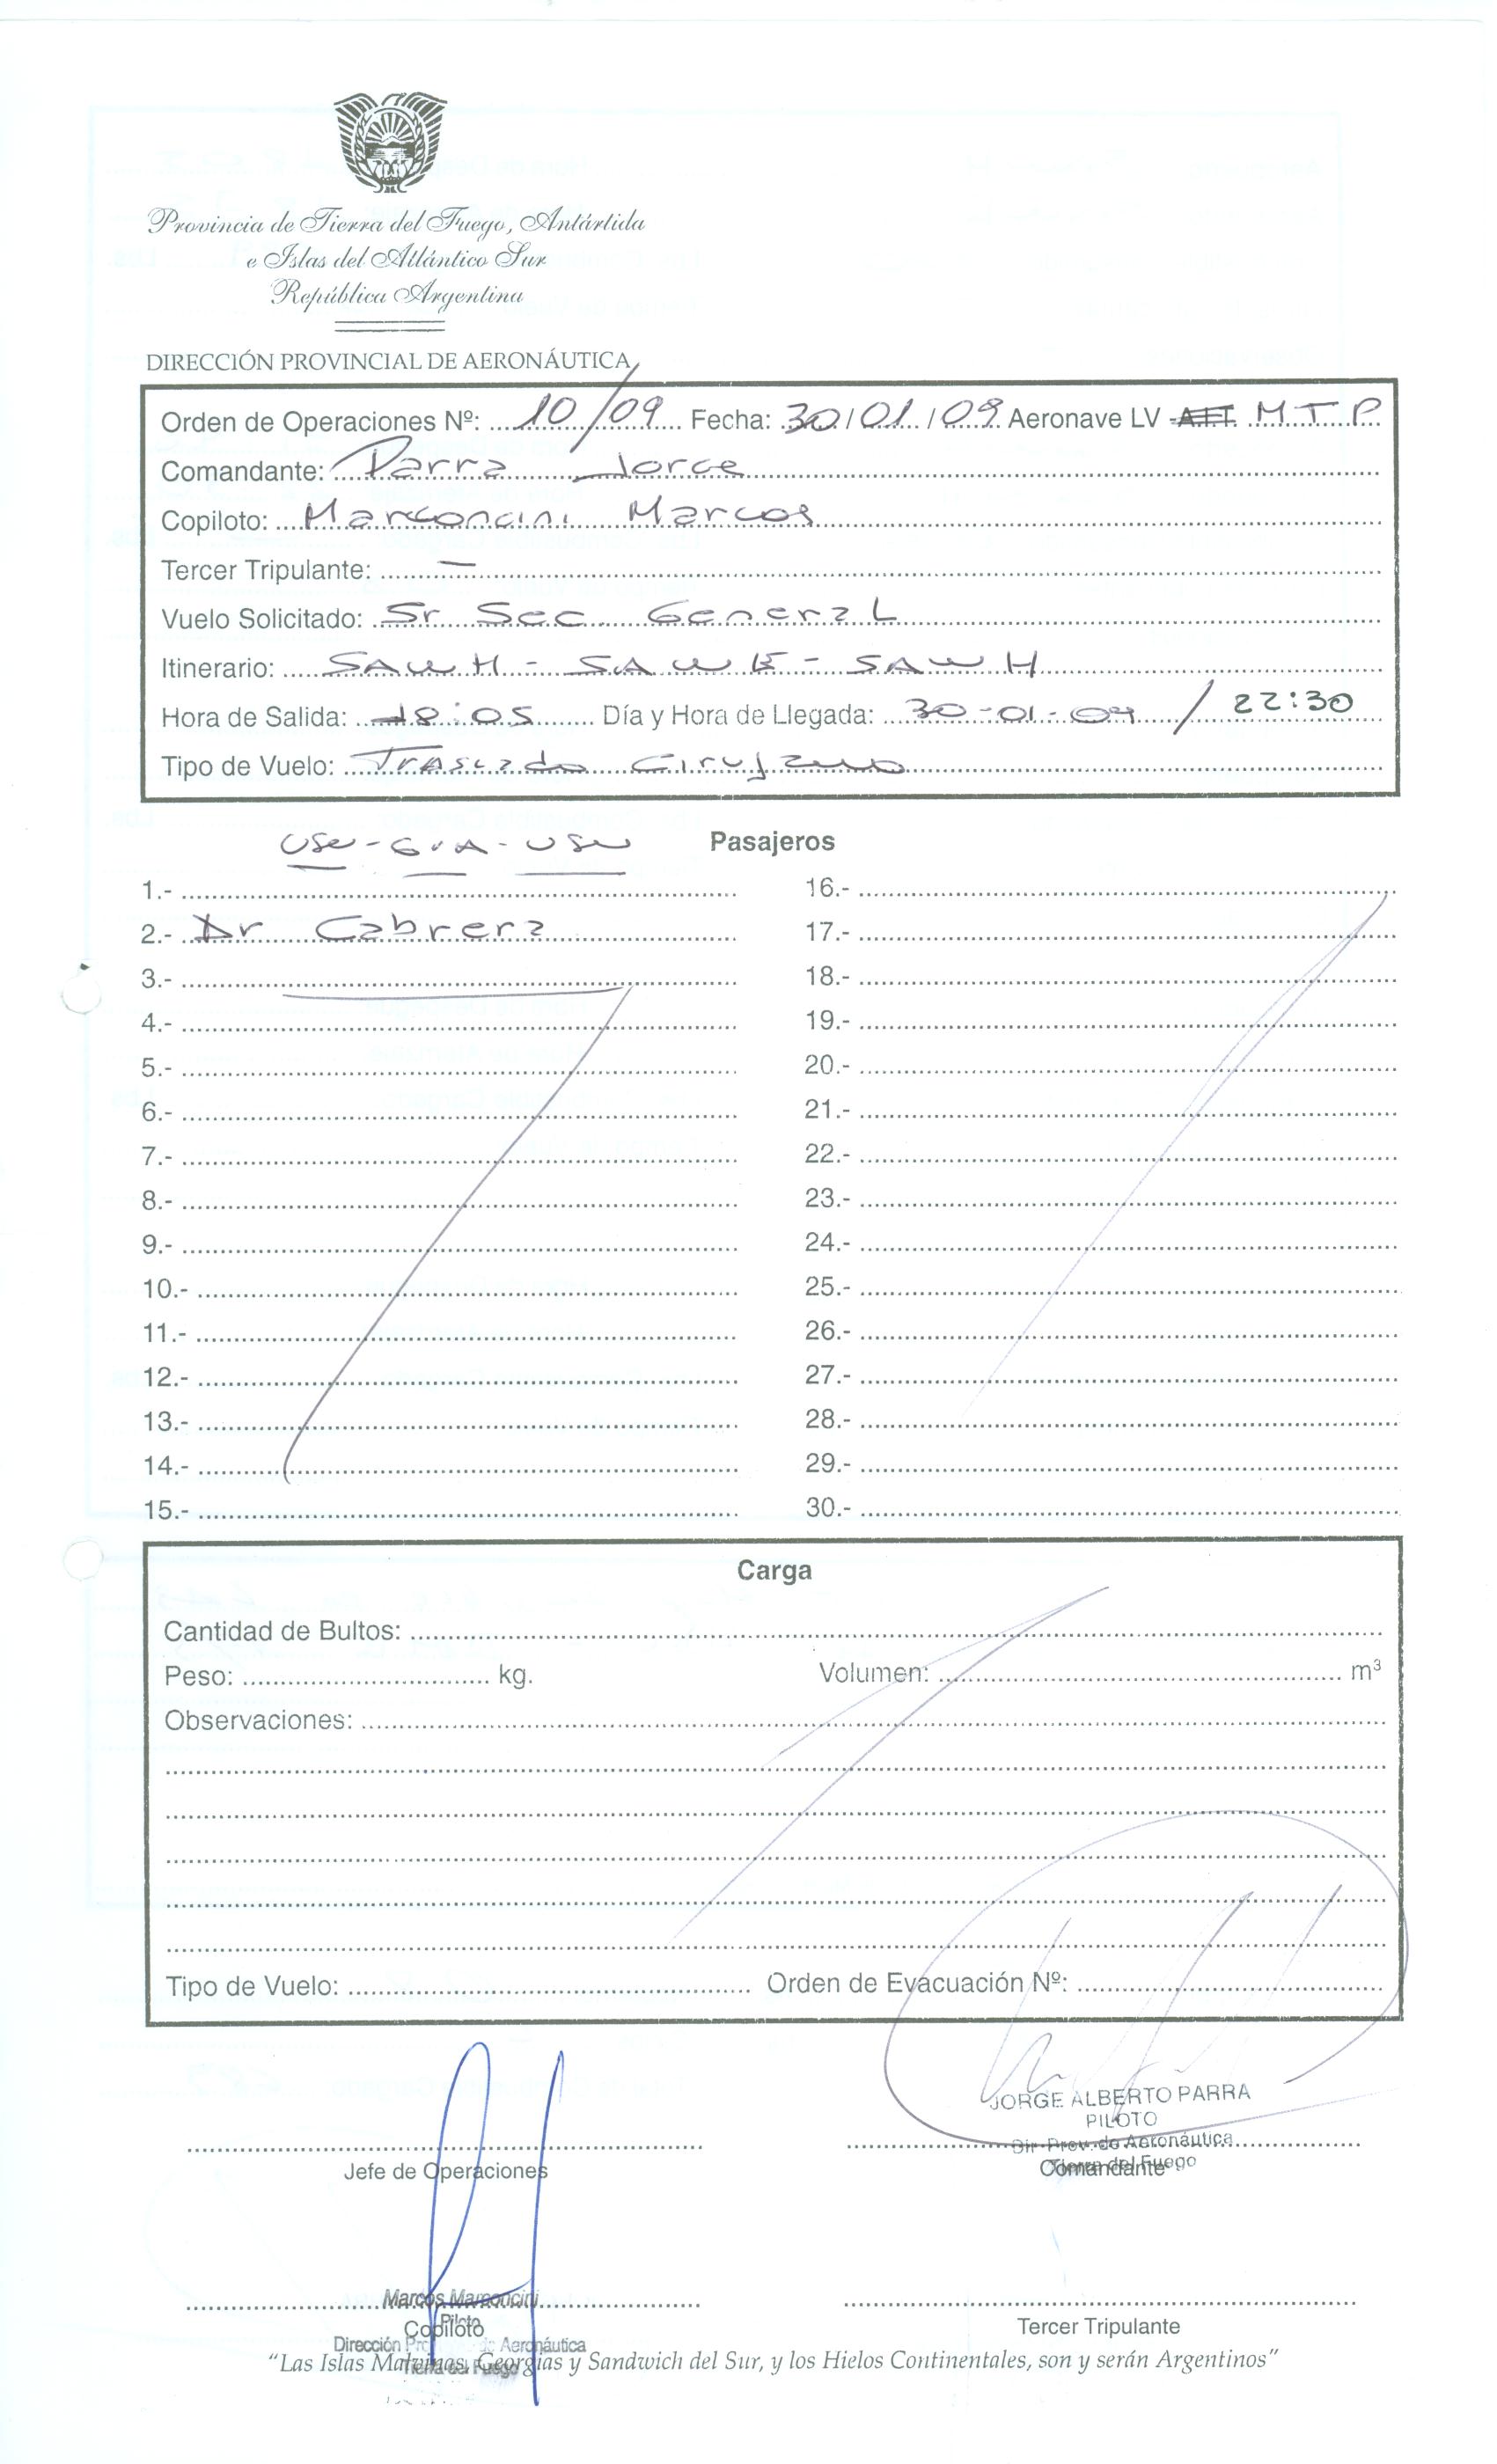 Provincia de Tierra del Fuego, Antártida
e Islas del Atlántico Sur
República Argentina
DIRECCIÓN PROVINCIAL DE AERONÁUTICA
Orden de Operaciones Nº: 10/09 Fecha: 30/01/09 Aeronave LV M T P
Comandante: Parra Jorge
Copiloto: Marconcini Marcos
Tercer Tripulante: —
Vuelo Solicitado: Sr Sec General
Itinerario: SAWH - SAWE - SAWH
Hora de Salida: 18:05 Día y Hora de Llegada: 30-01-09 / 22:30
Tipo de Vuelo: Traslado Cirujano
USU - GRA - USU Pasajeros
1.- 16.-
2.- Dr Cabrera 17.-
3.- 18.-
4.- 19.-
5.- 20.-
6.- 21.-
7.- 22.-
8.- 23.-
9.- 24.-
10.- 25.-
11.- 26.-
12.- 27.-
13.- 28.-
14.- 29.-
15.- 30.-
Carga
Cantidad de Bultos:
Peso: kg. Volumen: m³
Observaciones:
Tipo de Vuelo: Orden de Evacuación Nº:
JORGE ALBERTO PARRA
PILOTO
Dir. Prov. de Aeronáutica
Tierra del Fuego
Jefe de Operaciones Comandante
Marcos Marconcini
Piloto
Copiloto Tercer Tripulante
Dirección Aeronáutica
Tierra del Fuego
“Las Islas Malvinas, Georgias y Sandwich del Sur, y los Hielos Continentales, son y serán Argentinos”